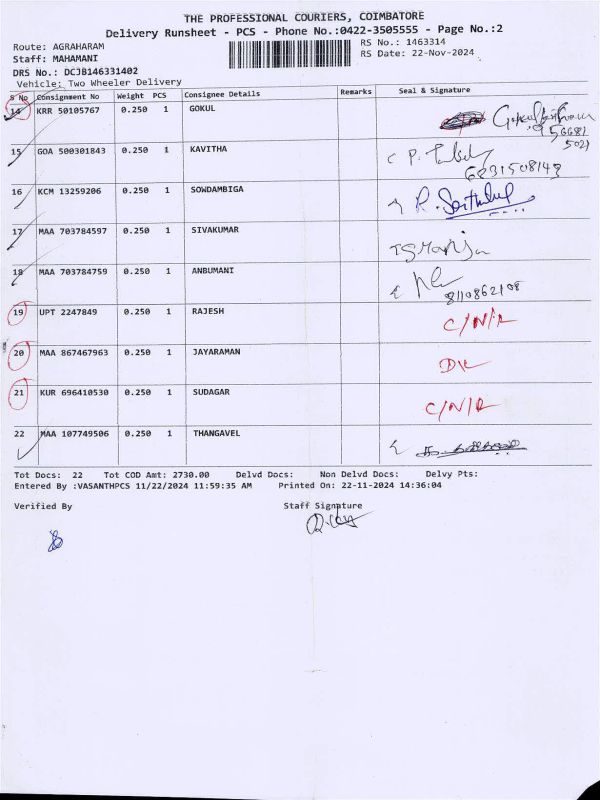 THE PROFESSIONAL COURIERS, COIMBATORE
Delivery Runsheet - PCS - Phone No.:0422-3505555 - Page No.:2
Route: AGRAHARAM
RS No.: 1463314
Staff: MAHAMANI
RS Date: 22-Nov-2024
DRS No.: DCJB146331402
Vehicle: Two Wheeler Delivery
S No Consignment No Weight PCS Consignee Details Remarks Seal & Signature
14 KRR 50105767 0.250 1 GOKUL
15 GOA 500301843 0.250 1 KAVITHA
16 KCM 13259206 0.250 1 SOWDAMBIGA
17 MAA 703784597 0.250 1 SIVAKUMAR
18 MAA 703784759 0.250 1 ANBUMANI 8110862108
19 UPT 2247849 0.250 1 RAJESH C/N/R
20 MAA 867467963 0.250 1 JAYARAMAN
21 KUR 696410530 0.250 1 SUDAGAR C/N/R
22 MAA 107749506 0.250 1 THANGAVEL
Tot Docs: 22 Tot COD Amt: 2730.00 Delvd Docs: Non Delvd Docs: Delvy Pts:
Entered By :VASANTHPCS 11/22/2024 11:59:35 AM Printed On: 22-11-2024 14:36:04
Verified By Staff Signature